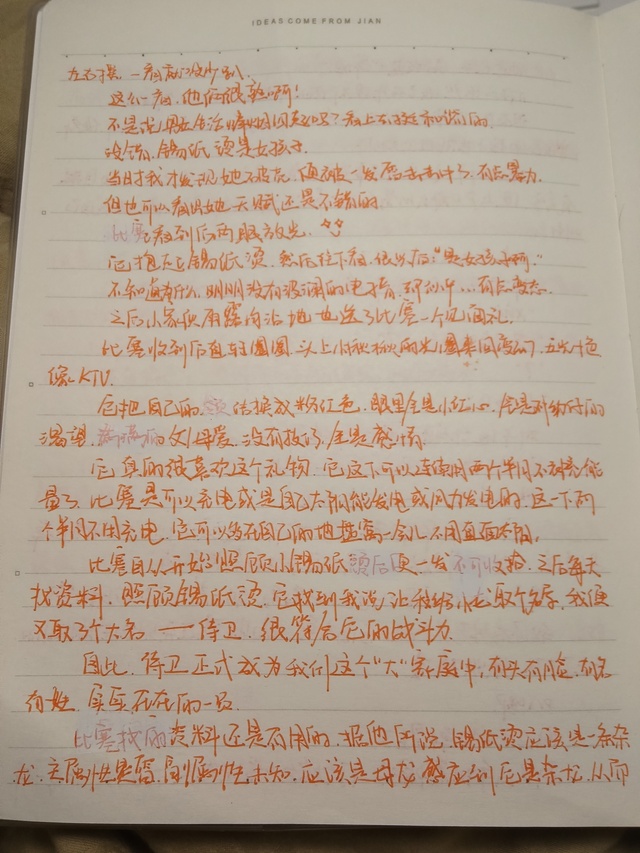 IDEAS COME FROM JIAN
左右摸，一看就没少趴，
这么一看，他俩很熟啊！
不是说
没错，锡纸烫是女孩子，
当时我才发现她不破壳，便被一发 击中了，有点暴力，
但也可以看出她天赋还是不错的
比赛看到后两眼放光，
它抱走锡纸烫，然后往下看，很 后，“是女孩子啊。”
不知道为什么，明明没有 的电子音，我却听 ……有点变态，
之后小家伙用露肉沾地也送了比赛一个见面礼，
比赛收到后直转圈圈，头上小秋秋的光圈来回变幻，五光十色
像KTV。
它把自己的 体换成粉红色，眼里全是小红心，全是对幼仔的
渴望，满满的父母爱，没有技巧，全是感情。
它真的很喜欢这个礼物，它这下可以连续用两个半月不补充能
量了，比赛是可以充电或是自己太阳能发电或风力发电的，这一下两
个半月不用充电，它可以多在自己的地盘窝一会儿，不用直面太阳。
比赛自从开始照顾小锡纸烫后便一发不可收拾，之后每天
找资料，照顾锡纸烫，它找到我说，让我给小龙取个名字，我便
又取了个大名——侍卫，很符合它的战斗力。
因此，侍卫正式成为我们这个“大”家庭中，有头有脸，有名
有姓，实实在在的一员
比赛找的资料还是有用的，据他所说，锡纸烫应该是一条杂
龙，主属性是 ，副属性未知，应该是母龙感应到它是杂龙，从而